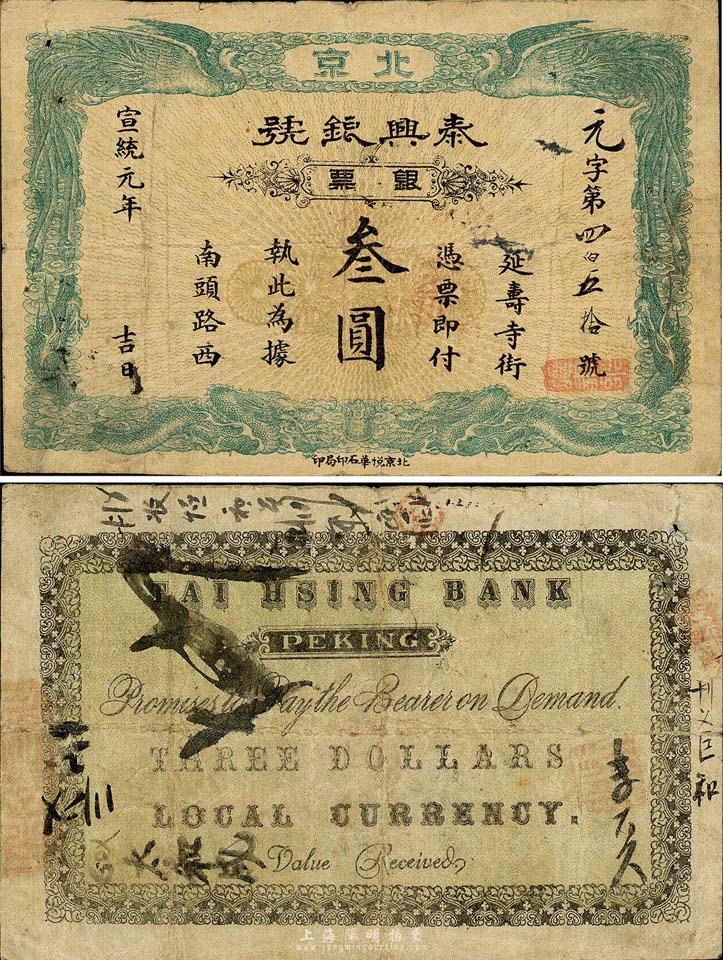 北京
泰興銀號
銀票
元字第四百五拾號
延壽寺街
憑票即付
叁圓
執此為據
南頭路西
宣統元年 吉日
北京悅華石印局印
TAI HSING BANK
PEKING
Promises to Pay the Bearer on Demand.
THREE DOLLARS
LOCAL CURRENCY.
Value Received
上海陽明拍賣
www.yangmingauction.com